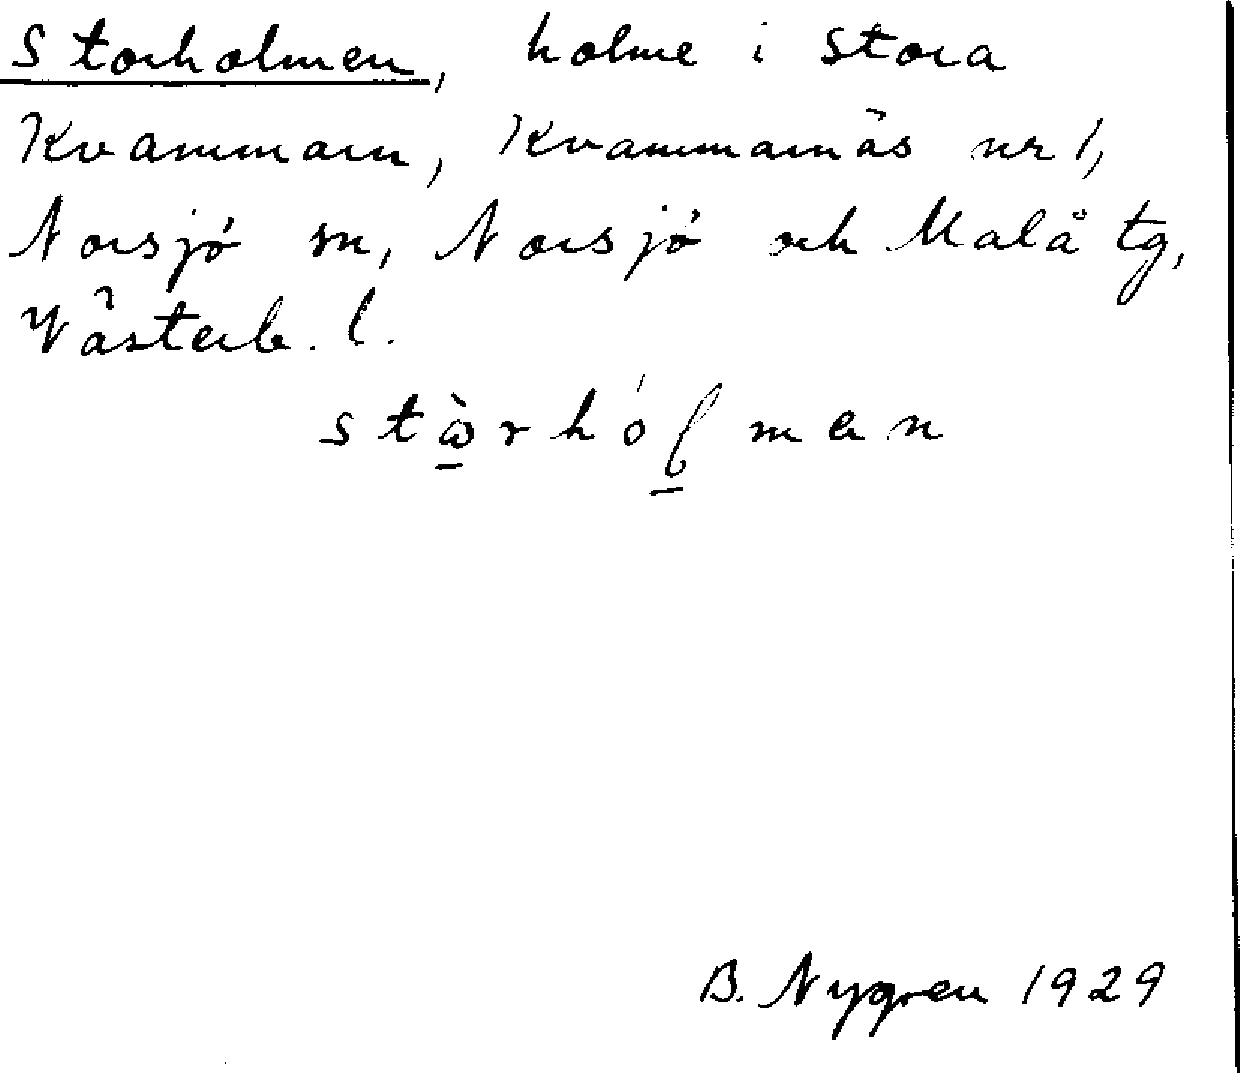 Storholmen, holme i Stora
Kvammarn, Kvammarnäs nr 1,
Norsjö sn, Norsjö och Malå tg,
Västerb. l.
stὼ̲rhóɭ̲man
B. Nygren 1929